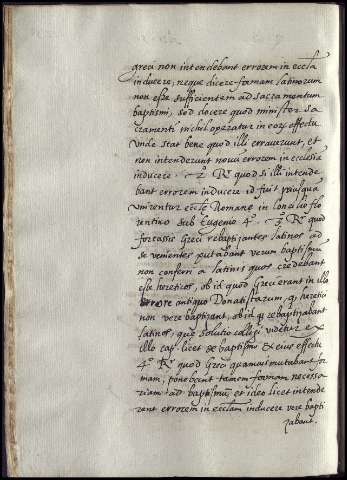 greci non intendebant errorem in eccła
inducere, neque dicere formam latinorum
non esse sufficientem ad sacramentum
baptismi, sed docere quod minister sa
cramenti nichil operatur in eoꝝ effectu
unde stat bene quod illi erraverunt, et
non intenderunt novũ errorem in ecclesia
inducere. 2ᵃ Rº quod si illi intende
bant errorem inducere id fuit priusquã
unirentur eccłe Romane in Concilio flo
rentino sub Eugenio 4º 3ᵃ Rº quod
forcassis Greci rebaptizantes latinos ad
se venientes putabant verum baptismũ
non conferri a latinis quos credebant
esse hereticos, ob id quod Greci erant in illo
errore antiquo Donatistarum, q̃ heretici
non vere baptizant, ob id q̃ rebaptizabant
latinos, que solutio colligi videtur ex
illo cap. licet de baptismo & eius effectu
4º Rº quod Greci quamvis mutabant for
mam, ponebant tamen formam necessa
riam ad baptismũ et ideo licet intende
rent errorem in ecclam inducere vere bapti
zabant.